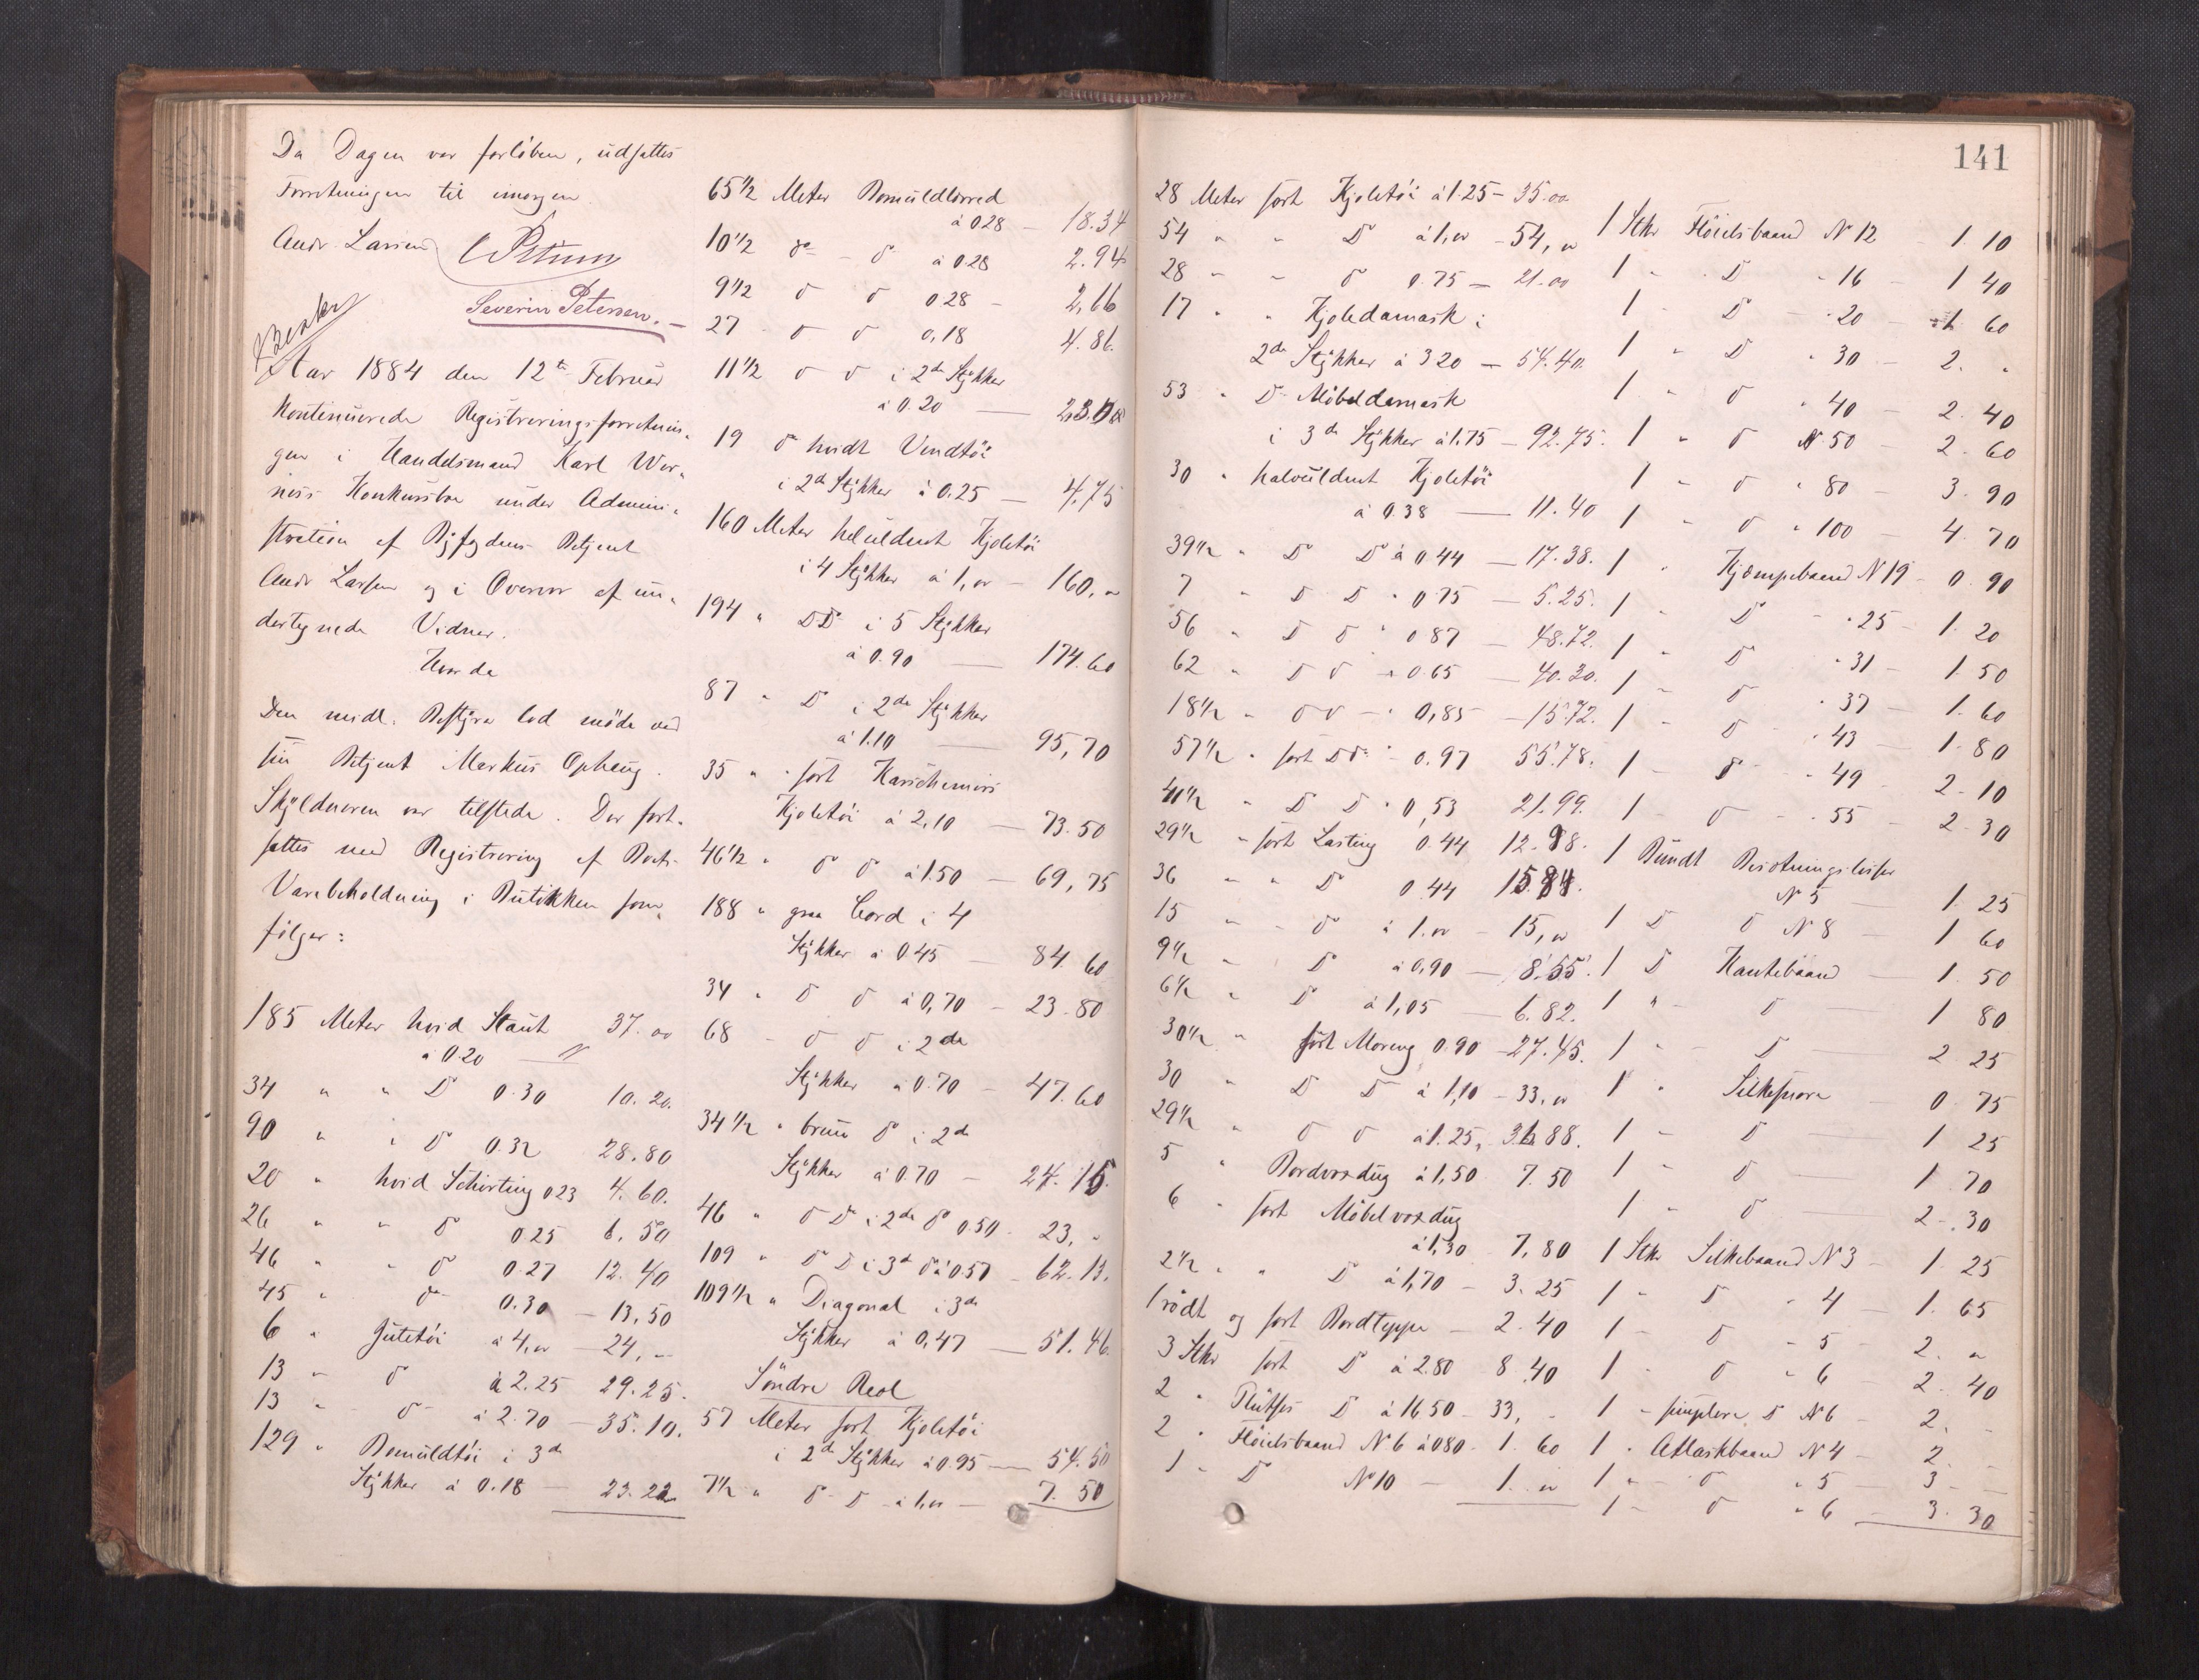 Da Dagen var forløben, udsattes
Forretningen til imorgen.
Andr. Larsen
Severin Petersen.
Aar 1884 den 12te Februar
kontinuerede Registreringsforretnin-
gen i Handelsmand Karl Wer-
ness Konkursbo under Admini-
stration af Byfogdens Betjent
Andr Larsen og i Overvær af un-
dertegnede Vidner.
Hvorda
Den midl. Bestyrer lod møde ved
sin Betjent Markus Opheug.
Skyldneren var tilstede. Der fort-
sattes med Registrering af Boets
Varebeholdning i Butikken som
følger:
185 Meter hvid Staut 37.00
à 0.20
34 " " Do 0.30 10.20.
90 " " Do 0.32 28.80
20 " hvid Schirting 0.23 4.60.
26 " " Do 0.25 6.50
46 " " Do 0.27 12.40
45 " Do 0.30 - 13,50
6 " Jutetøi à 4,00 24,"
13 " Do à 2.25 29.25.
13 " Do à 2.70 - 35.10.
129 " Bomuldtøi i 3de
Stykker à 0.18 - 23.22
65 1/2 Meter Bomuldlærred
à 0.28 - 18.34
10 1/2 Do - Do à 0.28 2.94
9 1/2 Do Do 0.28 - 2,66
27 - Do Do 0,18 4.86.
11 1/2 Do Do i 2de Stykker
à 0.20 - 2.30
19 Do hvidt Vendtøi
i 2de Stykker à 0.25 - 4.75
160 Meter heluldent Kjoletøi
i 4 Stykker à 1,00 - 160,"
194 " Do Do i 5 Stykker
à 0.90 - 174.60
87 " Do i 2de Stykker
à 1.10 - 95,70
35 " sort Kaschemirs
Kjoletøi à 2,10 - 73.50
46 1/2 " Do Do à 1.50 - 69,75
188 " graa Cord i 4
Stykker à 0.45 - 84.60
34 " Do Do à 0,70 - 23.80
68 - Do Do i 2de
Stykker à 0.70 - 47.60
34 1/2 " brun Do i 2de
Stykker à 0.70 - 24.15.
46 " Do Do i 2de Do 0.50 - 23,"
109 " Do Do i 3de Do à 0.57 - 62.13.
109 1/2 " Diagonal i 3de
Stykker à 0,47 - 51.46.
Søndre Reol
57 Meter sort Kjoletøi
i 2de Stykker à 0.95 - 54.50
7 1/2 " Do - Do - à 1,00 - 7.50
141
28 Meter sort Kjoletøi à 1.25 - 35.00
54 " - Do à 1,00 - 54,00
28 - - Do 0.75 - 21.00
17 " " Kjoledamask i
2de Stykker à 3.20 - 54.40.
53 " Do Møbeldamask
i 3de Stykker à 1.75 - 92.75.
30 " halvuldent Kjoletøi
à 0.38 - 11.40
39 1/2 " Do Do à 0.44 - 17.38.
7 " Do Do " 0.75 - 5.25.
56 " Do Do " 0.87 - 48.72.
62 " Do Do " 0.65 - 40.30.
18 1/2 " Do Do - " 0,85 - 15.72.
57 1/2 " sort Do Do " - 0.97 55.78.
41 1/2 " Do Do " 0,53 21.99.
29 1/2 " sort Lasting 0.44 12.98.
36 " " Do 0.44 15.84.
15 " - Do à 1.00 - 15,00
9 1/2 " Do à 0,90 - 8.55.
6 1/2 " Do à 1,05 - 6.82.
30 1/2 " sort Moreng 0.90 - 27.45.
30 " Do Do à 1,10 - 33,00
29 1/2 " Do Do à 1.25, 36.88.
5 " Bordvoxdug à 1,50 7.50
6 " sort Møbelvoxdug
à 1,30 7,80
2 1/2 " " Do à 1,70 - 3.25
1 rødt og sort Bordteppe - 2.40
3 Stkr sort Do à 2.80 8.40
2 " Plutses Do à 16.50 - 33,-
2 " Fløielsbaand N 6 à 0.80 - 1.60
1 - Do No 10 - 1.00
1 Stkr Fløielsbaand N 12 1.10
1 - Do " 16 - 1 40
1 - Do - " 20 - 1 60
1 " Do " 30 - 2. "
1 " Do " 40 - 2.40
1 " Do N 50 - 2.60
1 - Do " 80 - 3.90
1 " Do " 100 - 4.70
1 " Kjæmpebaand N 19 - 0.90
1 " Do - " 25 - 1.20
1 " Do " 31 - 1.50
1 - Do " 37 - 1.60
1 - Do " 43 - 1.80
1 - Do " 49 - 2.10
1 - Do - " 55 - 2.30
1 Bundt Besætningslisser
N 5 - 1.25
1 Do Do N 8 - 1 60
1 Do Kantebaand - 1 50
1 " - Do - 1 80
1 " - Do - 2 25
1 " Silkesnore - 0.75
1 - Do - 1 25
1 - Do - 1.70
1 - Do - 2.30
1 Stkr Silkebaand N 3 - 1.25
1 - Do " 4 - 1.65
1 - Do " 5 - 2. "
1 - Do " 6 - 2.40
1 - simplere Do N 6 - 2.-
1 " Atlaskbaand N 4 - 2.-
1 " Do " 5 - 3 -
1 - Do " 6 - 3.30